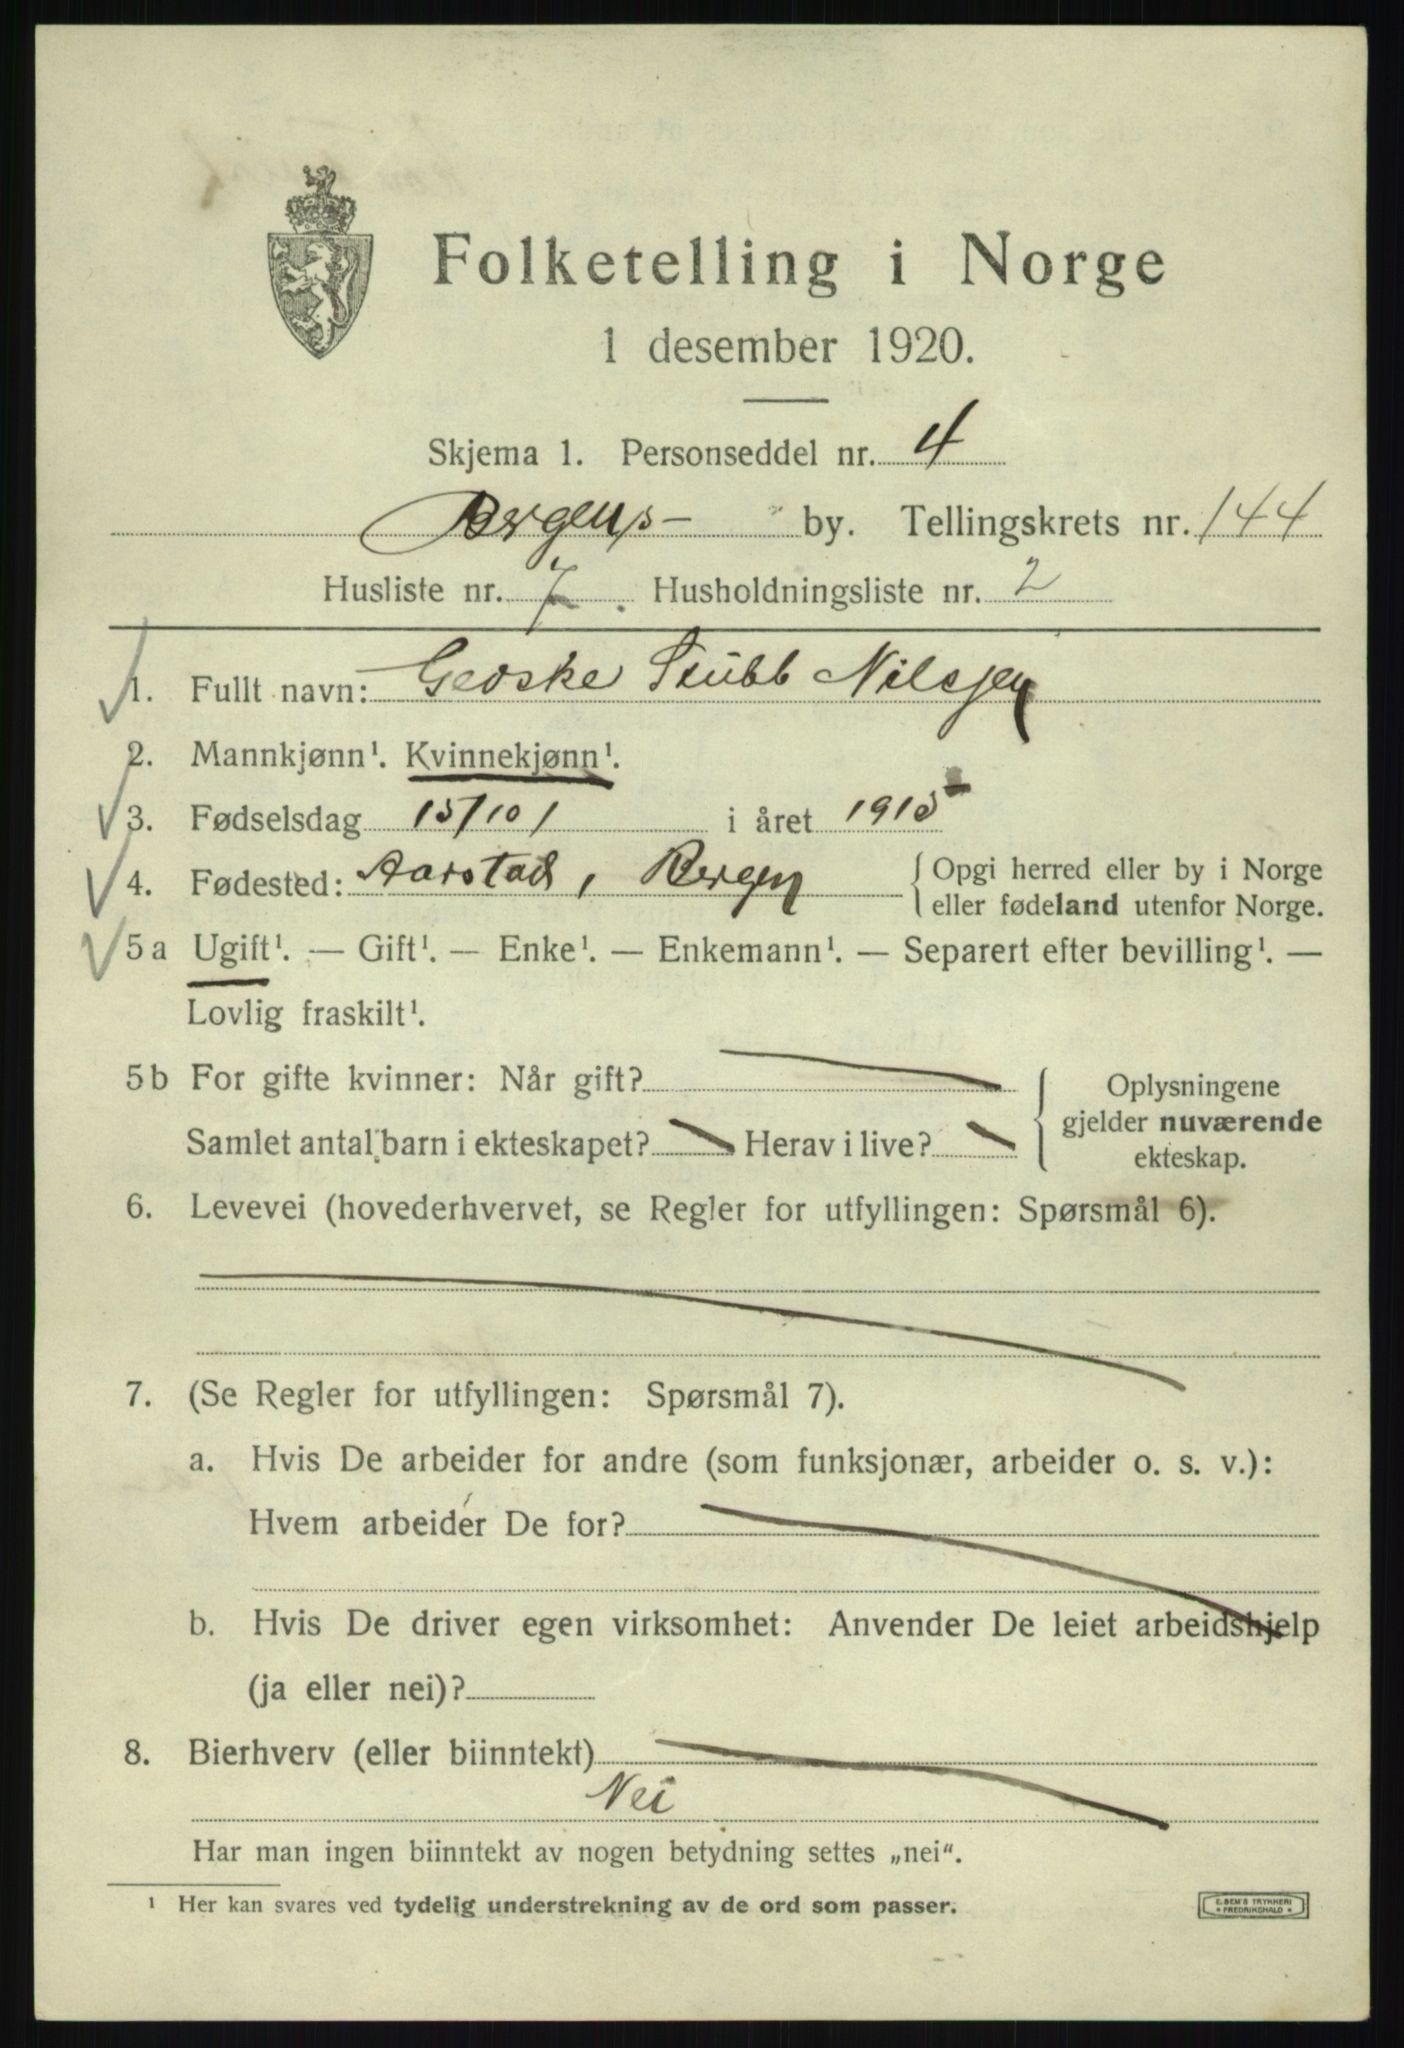 Folketelling i Norge
1 desember 1920.
Skjema 1. Personseddel nr. 4
Bergens by. Tellingskrets nr. 144
Husliste nr. 7. Husholdningsliste nr. 2
1. Fullt navn: Geoske Stubb Nilsen
2. Mannkjønn¹. Kvinnekjønn¹.
3. Fødselsdag 15/10 i året 1915
4. Fødested: Aarstad, Bergen { Opgi herred eller by i Norge
eller fødeland utenfor Norge.
5 a Ugift¹. — Gift¹. — Enke¹. — Enkemann¹. — Separert efter bevilling¹. —
Lovlig fraskilt¹.
5 b For gifte kvinner: Når gift? { Oplysningene
gjelder nuværende
Samlet antal barn i ekteskapet? Herav i live? ekteskap.
6. Levevei (hovederhvervet, se Regler for utfyllingen: Spørsmål 6).
7. (Se Regler for utfyllingen: Spørsmål 7).
a. Hvis De arbeider for andre (som funksjonær, arbeider o. s. v.):
Hvem arbeider De for?
b. Hvis De driver egen virksomhet: Anvender De leiet arbeidshjelp
(ja eller nei)?
8. Bierhverv (eller biinntekt)
Nei
Har man ingen biinntekt av nogen betydning settes „nei“.
¹ Her kan svares ved tydelig understrekning av de ord som passer.
E. SEM'S TRYKKERI
* FREDRIKSHALD *